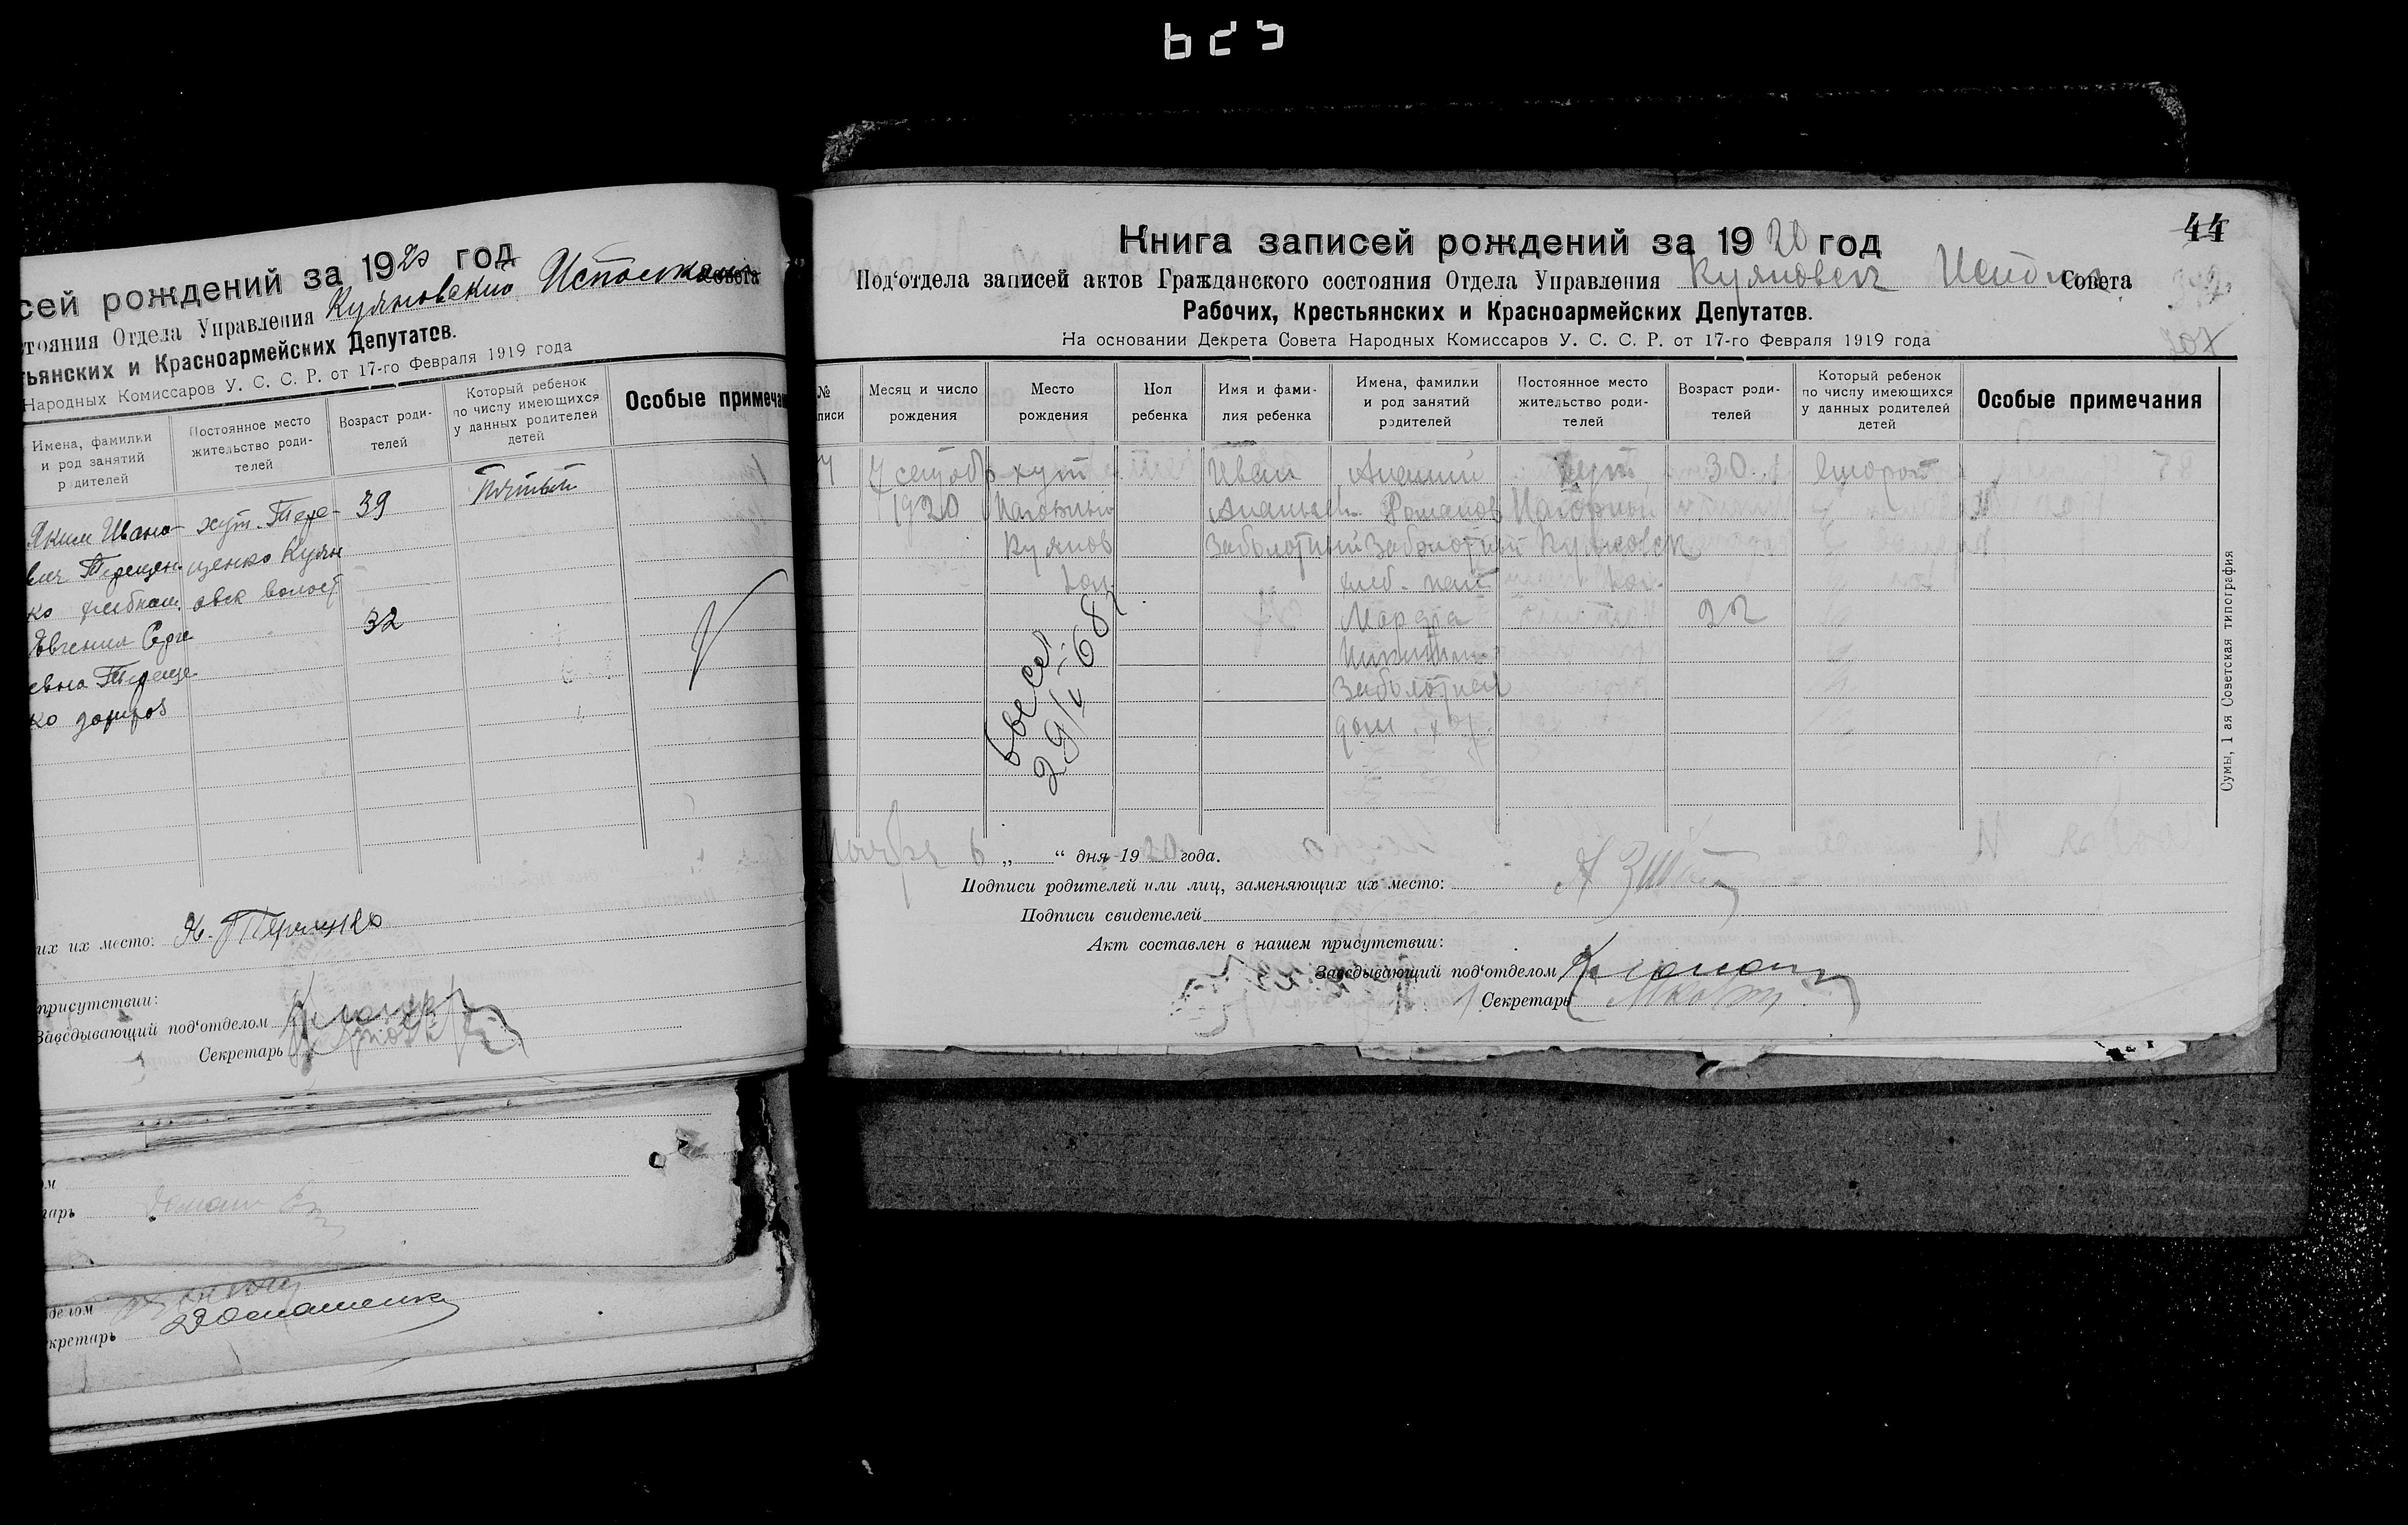 сей рождений за 1920 год
стояния Отдела Управления Куяновский Исполком Совета
тьянских и Красноармейских Депутатов.
Народных Комиссаров У. С. С. Р. от 17-го Февраля 1919 года
Имена, фамилии и род занятий родителей
Постоянное место жительство родителей
Возраст родителей
Который ребенок по числу имеющихся у данных родителей детей
Особые примеча
Яким Ивано- хут. Тере- 39 Пятый
вич Терещен- щенко Куян
ко хлебпаш. овск волост
Евгения Серге 32
евна Терещен-
ко
их их место: Я. Терещенко
присутствии:
Заведывающий под‘отделом
Секретарь
ом
тарь
делом
кретарь Домашенко
44
Книга записей рождений за 1920 год
Под‘отдела записей актов Гражданского состояния Отдела Управления Куяновск Исполк. Совета
Рабочих, Крестьянских и Красноармейских Депутатов.
207
На основании Декрета Совета Народных Комиссаров У. С. С. Р. от 17-го Февраля 1919 года
№ писи
Месяц и число рождения
Место рождения
Пол ребенка
Имя и фамилия ребенка
Имена, фамилии и род занятий родителей
Постоянное место жительство родителей
Возраст родителей
Который ребенок по числу имеющихся у данных родителей детей
Особые примечания
7 сентобр хут Иван Ананий хут 30 второй
1920 Нагорный Ананьев. Романов Нагорный
Куянов Заболотний Заболотний Куяновск
вол. хлеб. паш вол.
Марфа 22
Никитична
Заболотная
дом. хоз.
29/V-68
Ноября 6 „ “ дня 1920 года.
Подписи родителей или лиц, заменяющих их место:
Подписи свидетелей
Акт составлен в нашем присутствии:
Заведывающий под‘отделом
Секретарь
Сумы, 1 ая Советская типография